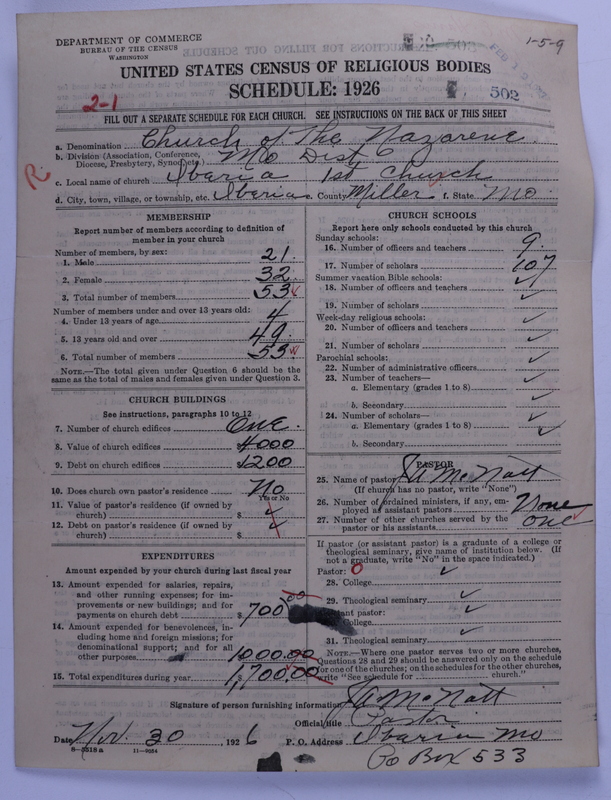 DEPARTMENT OF COMMERCE
BUREAU OF THE CENSUS
WASHINGTON
1-5-9
UNITED STATES CENSUS OF RELIGIOUS BODIES
SCHEDULE: 1926
502
2-1
FILL OUT A SEPARATE SCHEDULE FOR EACH CHURCH. SEE INSTRUCTIONS ON THE BACK OF THIS SHEET
R
a. Denomination Church of The Nazarene
b. Division (Association, Conference, Diocese, Presbytery, Synod, etc.) Mo Dist
c. Local name of church Iberia 1st Church
d. City, town, village, or township, etc. Iberia e. County Miller f. State Mo.
MEMBERSHIP
Report number of members according to definition of member in your church
Number of members, by sex:
1. Male 21.
2. Female 32.
3. Total number of members 53
Number of members under and over 13 years old:
4. Under 13 years of age 4
5. 13 years old and over 49.
6. Total number of members 53
NOTE.—The total given under Question 6 should be
same as the total of males and females given under Question 3.
CHURCH BUILDINGS
See instructions, paragraphs 10 to 12
7. Number of church edifices One.
8. Value of church edifices $4000
9. Debt on church edifices $1200
10. Does church own pastor's residence No
Yes or No
11. Value of pastor's residence (if owned by
church) $ ✓
12. Debt on pastor's residence (if owned by
church) $ ✓
EXPENDITURES
Amount expended by your church during last fiscal year
13. Amount expended for salaries, repairs,
and other running expenses; for im-
provements or new buildings; and for
payments on church debt $700.00
14. Amount expended for benevolences, in-
cluding home and foreign missions; for
denominational support; and for all
other purposes 1000.00
15. Total expenditures during year 1,700.00
CHURCH SCHOOLS
Report here only schools conducted by this church
Sunday schools:
16. Number of officers and teachers 9.
17. Number of scholars 107
Summer vacation Bible schools:
18. Number of officers and teachers ✓
19. Number of scholars ✓
Week-day religious schools:
20. Number of officers and teachers ✓
21. Number of scholars ✓
Parochial schools:
22. Number of administrative officers ✓
23. Number of teachers—
a. Elementary (grades 1 to 8) ✓
b. Secondary ✓
24. Number of scholars— ✓
a. Elementary (grades 1 to 8) ✓
b. Secondary
PASTOR
25. Name of pastor McNatt
(If church has no pastor, write "None")
26. Number of ordained ministers, if any, em-
ployed as assistant pastors None
27. Number of other churches served by the
pastor or his assistants one
If pastor (or assistant pastor) is a graduate of a college or
theological seminary, give name of institution below. (If
not a graduate, write "No" in the space indicated.)
Pastor: 0
28. College ✓
29. Theological seminary ✓
tant pastor:
ollege ✓
31. Theological seminary ✓
NOTE.—Where one pastor serves two or more churches,
Questions 28 and 29 should be answered only on the schedule
for one of the churches; on the schedules for the other churches,
write "See schedule for church."
Signature of person furnishing information McNatt
Official title Pastor
Date Nov. 30, 1926 P. O. Address Iberia Mo
8-5518a 11-9054
Po Box 533